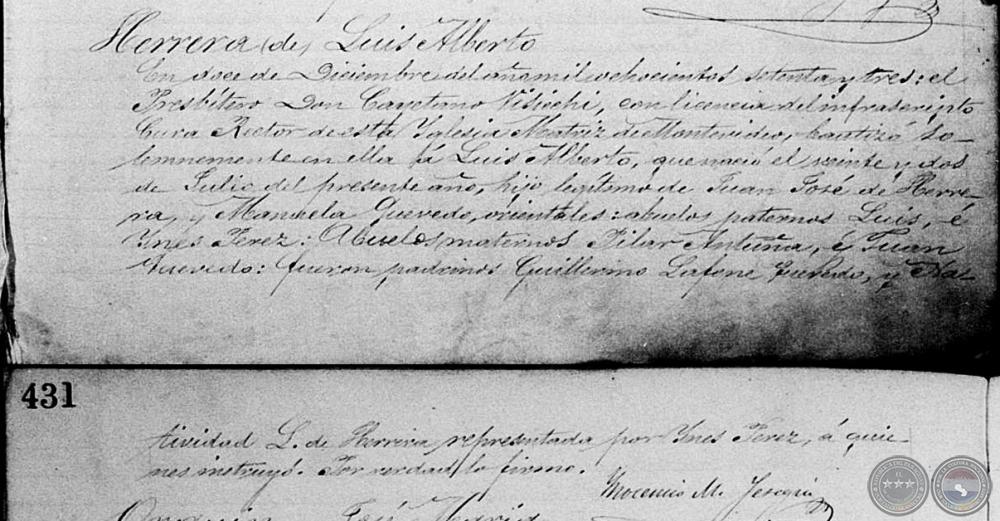 Herrera (de) Luis Alberto
En doce de Diciembre del año mil ochocientos setenta y tres: el
Presbítero Don Cayetano, con licencia del infrascripto
Cura Rector de esta Iglesia Matriz de Montevideo, bautizó so-
lemnemente en ella á Luis Alberto, que nació el veinte y dos
de Julio del presente año, hijo legítimo de Juan José de Herre-
ra, y Manuela Quevedo, orientales: abuelos paternos Luis, é
Ynes Perez: Abuelos maternos Pilar Antuña, é Juan
Quevedo: fueron padrinos Guillermo Lafone Quevedo, y Na-
431
tividad L. de Herrera representada por Ynes Perez, á quie-
nes instruyó. Por verdad lo firmo.
Inocencio M. Yeregui
José Madrid